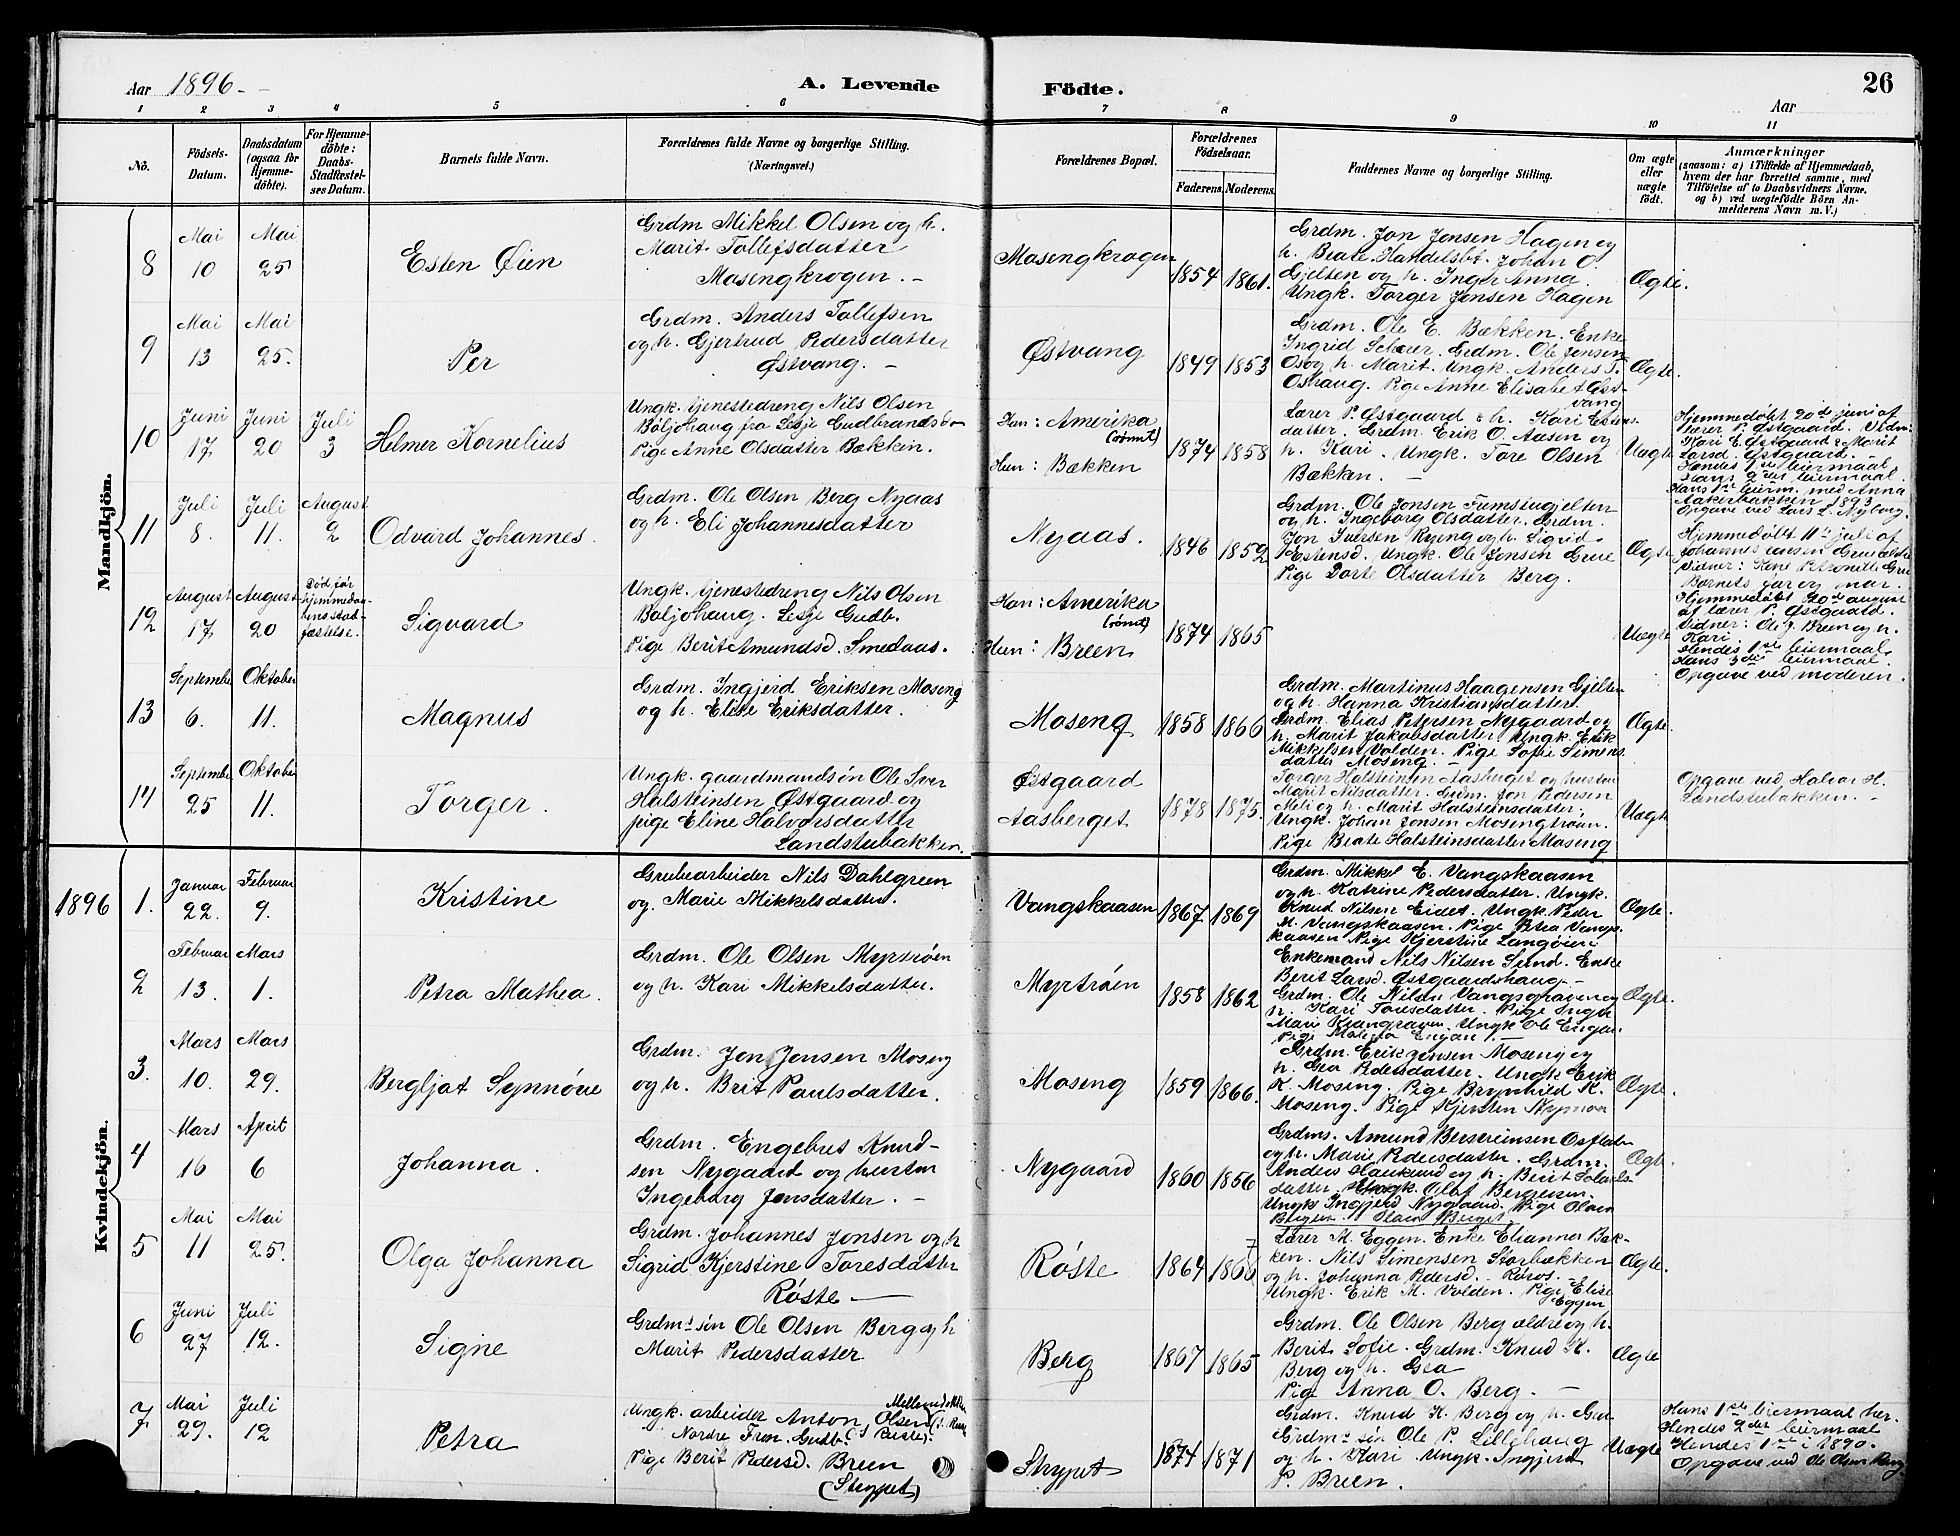 Aar 1896.
A. Levende
Födte.
26
Aar
1 2 3 4 5 6 7 8 9 10 11
No.
Födsels-Datum.
Daabsdatum (ogsaa for Hjemmedöbte).
For Hjemmedöbte: Daabs-Stadfæstelses Datum.
Barnets fulde Navn.
Forældrenes fulde Navne og borgerlige Stilling.
(Næringsvei.)
Forældrenes Bopæl.
Forældrenes Födselsaar.
Faderens. Moderens.
Faddernes Navne og borgerlige Stilling.
Om ægte eller uægte födt.
Anmærkninger
(saasom: a) i Tilfælde af Hjemmedaab, hvem der har forrettet samme, med Tilföielse af to Daabsvidners Navne, og b) ved uægtefödte Börn Anmelderens Navn m. V.)
Mandkjön.
8
Mai 10
Mai 25
Esten Øien
Grdm Mikkel Olsen og h.
Marit Tollefsdatter
Mosengkrogen. -
Mosengkrogen
1854 1861.
Grdm. Jon Jensen Hagen og
h. Beate Handelsbt. Johan O.
Gjelten og h. Inger Anna.
Ungk. Torger Jensen Hagen
Ægte.
9
Mai 13
Mai 25.
Per
Grdm. Anders Tollefsen
og h. Gjertrud Pedersdatter
Østvang. -
Østvang
1849 1853
Grdm. Ole E. Bækken. Enke
Ingrid Grdm. Ole Jensen
Os og h. Marit. Ungk. Anders T.
Oshaug. Pige Anne Elisabet Øst-
vang
Ægte.
10
Juni 17
Juni 20
Juli 3
Helmer Kornelius
Ungk. tjenestedreng Nils Olsen
Böljohaug fra Lesje Gudbrandsd.
Pige Anne Olsdatter Bækken.
Han: Amerika
(rømt)
Hun: Bækken
1874 1858
Lærer P. Østgaard & h. Kari Estens-
datter. Grdm. Erik O. Aasen og
h. Kari. Ungk. Tore Olsen
Bækken. -
Uægte
Hjemmedøbt 20de juni af
lærer P. Østgaard. Vidn:
Kari E. Østgaard & Marit
Larsd. Østgaard. -
Hendes 1ste leiermaal
Hans 2det leiermaal.
Hans 1ste leierm. med Anna
Aakerbakken 1893.
Opgave ved Lars L. Nyborg.
11
Juli 8.
Juli 11.
August 2
Odvard Johannes.
Grdm. Ole Olsen Berg Nyaas
og h. Eli Johannesdatter
Nyaas.
1846 1852
Grdm. Ole Jonsen Tufmstugjelten
og h. Ingeborg Olsdatter. Grdm.
Jon Iversen Ryeng og h. Sigrid
Estensd. Ungk. Ole Jonsen Grue
Pige Dorte Olsdatter Berg.
Ægte
Hjemmedøbt 11te juli af
Johannes
Vidner:
Barnets far og mor.
12
August 17
August 20
Død før
hjemmedaa-
bens stad-
fæstelse.
Sigvard
Ungk. tjenestedreng Nils Olsen
Böljohaug. Lesje Gudb.
Pige Berit Amundsd. Smedaas.
Han: Amerika
(rømt)
Hun: Breen
1874 1865
Uægte
Hjemmedøbt 20de august
af lærer P. Østgaard.
Vidner: Ole J. Breen og h.
Kari
Hendes 1ste leiermaal
Hans 3die leiermaal.
Opgave ved moderen.
13
September 6.
Oktober 11.
Magnus
Grdm. Ingjerd Eriksen Moseng
og h. Elise Eriksdatter.
Moseng
1858 1866
Grdm. Martinus Haagensen Gjelten
og h. Hanna Kristiansdatter.
Grdm. Elias Petersen Nygaard og
h. Marit Jakobsdatter. Ungk. Erik
Mikkelsen Volden. - Pige Sofie Simens
datter Moseng. -
Ægte.
14
September 25
Oktober 11.
Torger.
Ungk. gaardmandsön Ole Iver
Halsteinsen Østgaard og
pige Eline Halvorsdatter
Landstubakken.
Østgaard
Aasberget
1878 1875.
Torger Halsteinsen Aasberget og hustru
Marit Nilsdatter. Grdm. Jon Pedersen
Meli og h. Marit Halsteinsdatter.
Ungk. Johan Jonsen Mosengtrøen.
Pige Beate Halsteinsdatter Moseng
Uægte
Opgave ved Halvor H.
Landstubakken. -
1896
Kvindekjön.
1.
Januar 22.
Februar 9.
Kristine
Grubearbeider Nils Dahlgreen
og Marie Mikkelsdatter.
Vangskaasen
1867 1869
Grdm. Mikkel E. Vangskaasen
og h. Katrine Pedersdatter. Ungk.
Knud Nilsen Eidet. Ungk. Peder
M. Vangskaasen. Pige Vangs-
kaasen Pige Kjerstine Langøien
Ægte.
2
Februar 13.
Mars 1.
Petra Mathea.
Grdm. Ole Olsen Myrtrøen
og h. Kari Mikkelsdatter.
Myrtrøen
1858 1862
Enkemand Nils Nilsen Sund. Enke
Berit Larsd. Østgaardshaug. -
Grdm. Ole Nilsen Vangsgraven og
h. Kari Toresdatter. Pige
Marie Ungk Ole Engan.
Pige Engan. -
Ægte.
3.
Mars 10.
Mars 29.
Bergljot Synnøve
Grdm. Jon Jensen Moseng
og h. Brit Paulsdatter.
Moseng
1859 1866.
Grdm. Erik Jensen Moseng og
h. Gea Pedersdatter. Ungk Erik
K. Moseng. Pige Brynhild K.
Moseng. Pige Kjersten Nymoen
Ægte.
4
Mars 16
April 6
Johanna.
Grdm. Engebus Knud-
sen Nygaard og hustru
Ingeborg Jonsdatter. -
Nygaard
1860 1856
Grdms. Amund
og h. Marie Pedersdatter. Grdm.
Anders og h. Berit
datter. Ungk. Olaf Bergersen.
Ungk Ingjerd Nygaard. Pige Olava
Ægte.
5
Mai 11
Mai 25.
Olga Johanna
Grdm. Johannes Jonsen og h
Sigrid Kjerstine Toresdatter
Røste -
Røste
1864 1866 7
Lærer M. Eggen. Enke Elianna Bak-
ken. Nils Simensen Storbækken
og h. Johanna Pedersd. - Röros. -
Ungk. Erik M. Volden. Pige Elise
Eggen
Ægte.
6
Juni 27
Juli 12.
Signe
Grdms sön Ole Olsen Berg og h
Marit Pedersdatter
Berg
1867 1865
Grdm. Ole Olsen Berg ældre og h.
Berit Sofie. Grdm. Knud K.
Berg og h. Gea
Pige Anna O. Berg. -
Ægte
7
Mai 29.
Juli 12
Petra
Ungk. arbeider Anton Olsen
Nordre Fron. Gudb.
Pige Berit Pedersd. Breen
(Strypet)
Strypet
1874 1871
Grdm. Knud K. Berg og h. Gea
Grdms sön Ole P. Lillehaug
og h. Kari Ungk. Ingjerd
P. Breen.
Uægte
Hans 1ste leiermaal her.
Hendes 2det leiermaal
Hendes 1ste i 1890.
Opgave ved Ole Olsen Berg